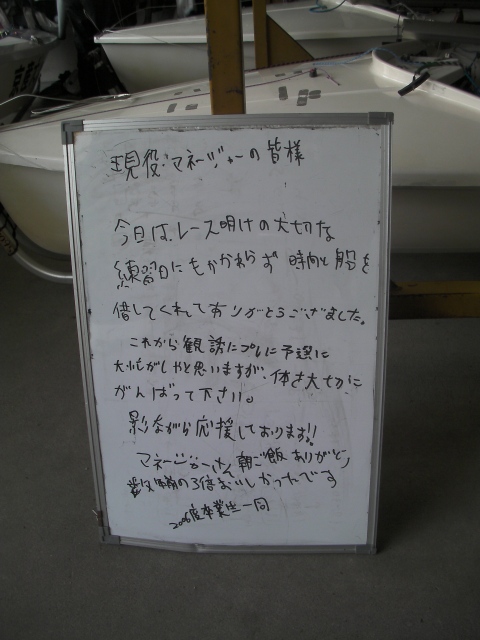 現役・マネージャーの皆様
今日は、レース明けの大切な
練習日にもかかわらず 時間と船を
借してくれてありがとうございました。
これから観誘にプレに予選に
大忙がしやと思いますが、体を大切に
がんばって下さい。
影ながら応援しております!!
マネージャーさん 朝ご飯 ありがとう
の3倍おいしかったです
2006度卒業生一同